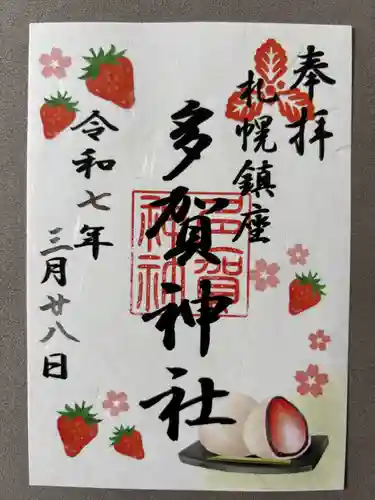 奉拝
札幌鎮座
多賀神社
令和七年
三月廿八日
多賀
神社